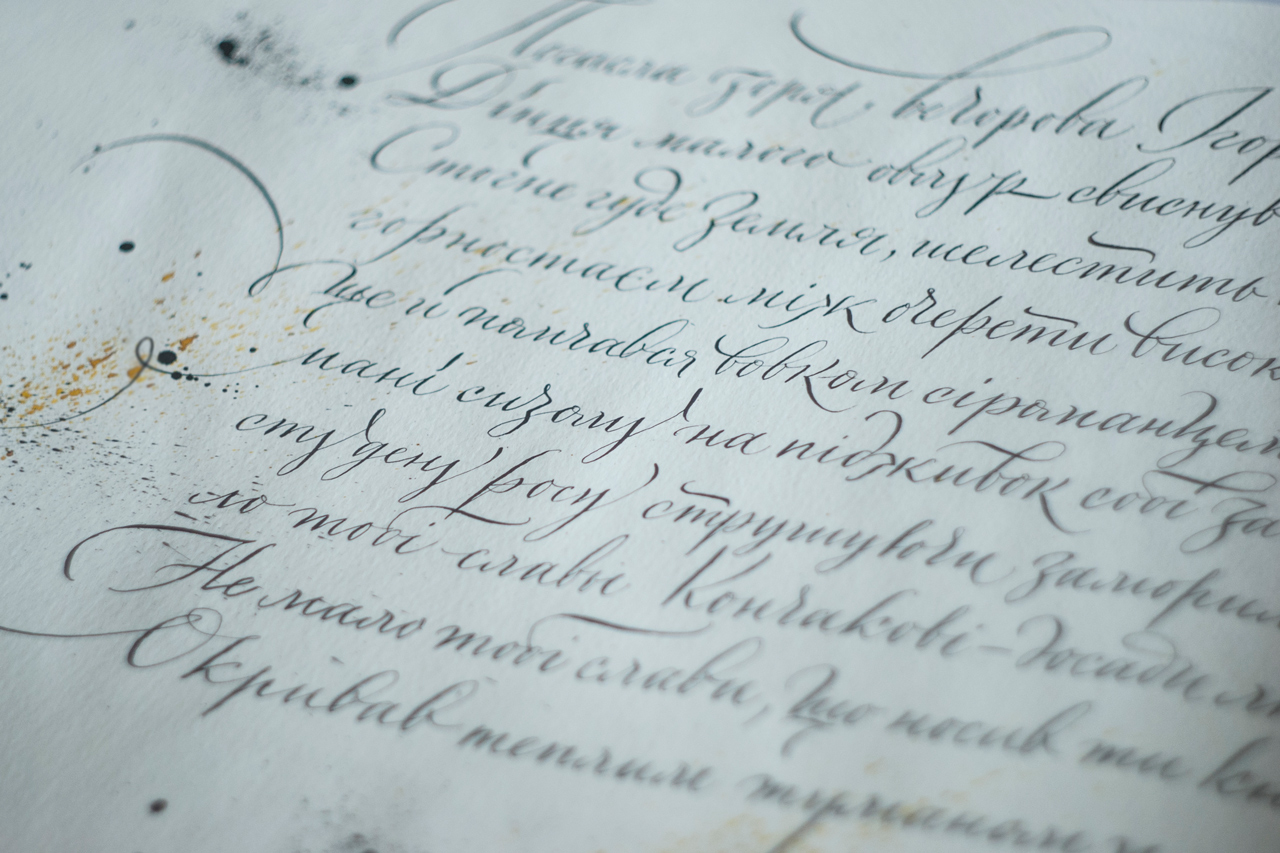 Погасла зоря вечорова Ігор
Дінця малого овлур свиснув
Стугне гуде Земля, шелестить
горностаєм між очерети висок
Ще й помчався вовком сіроманцем
мані сизому на підживок собі за
студену росу струшуючи заморил
ло тобі слави Кончакові – досади
Не мало тобі слави, що носив ти
Окривав теплими туманами